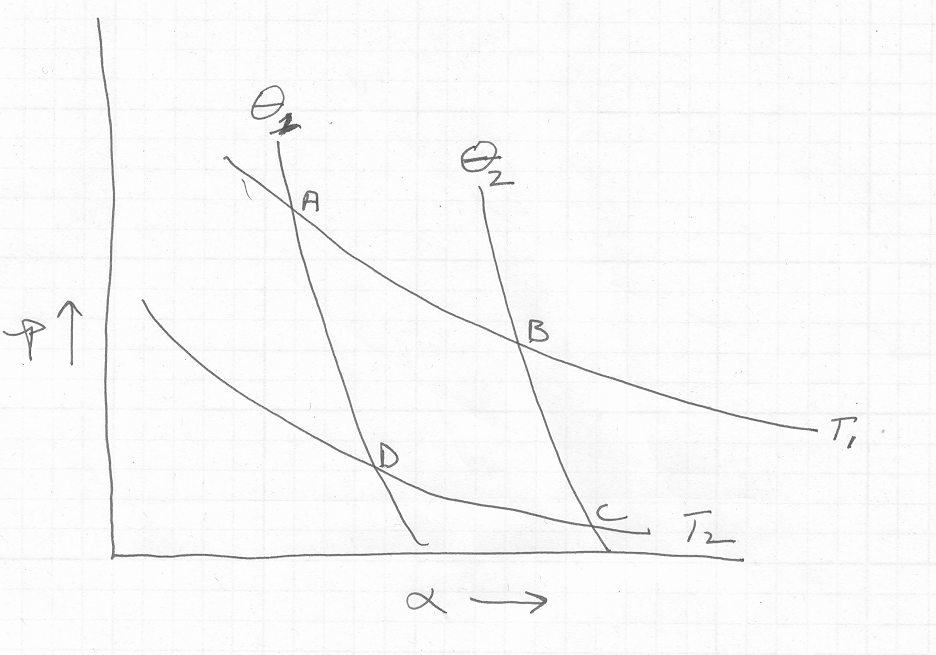 θ₁
θ₂
A
B
P ↑
T₁
D
C
T₂
α →